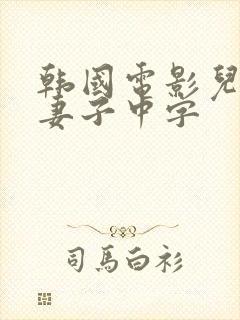 韩國電影兒
妻子中字
司馬白衫